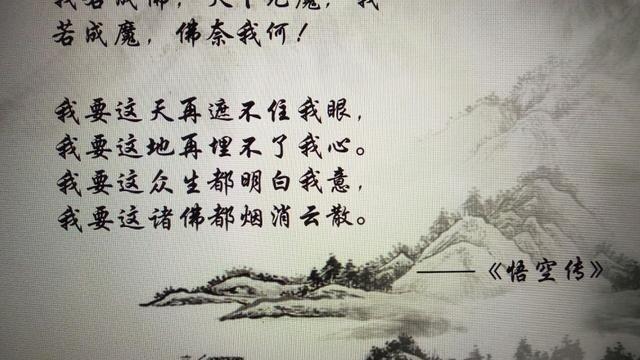 我若成佛，天下无魔，我
若成魔，佛奈我何！
我要这天再遮不住我眼，
我要这地再埋不了我心。
我要这众生都明白我意，
我要这诸佛都烟消云散。
——《悟空传》